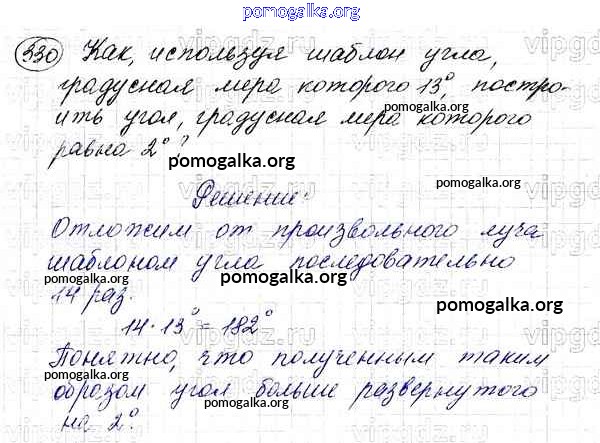 pomogalka.org
330 Как, используя шаблон угла,
градусная мера которого 13°, постро-
pomogalka.org
ить угол, градусная мера которого
равна 2°?
pomogalka.org
pomogalka.org
Решение:
Отложим от произвольного луча
pomogalka.org
шаблоном угла последовательно
pomogalka.org
14 раз.
pomogalka.org
14·13° = 182°
pomogalka.org
Понятно, что полученным таким
образом угол больше развернутого
pomogalka.org
pomogalka.org
на 2°.